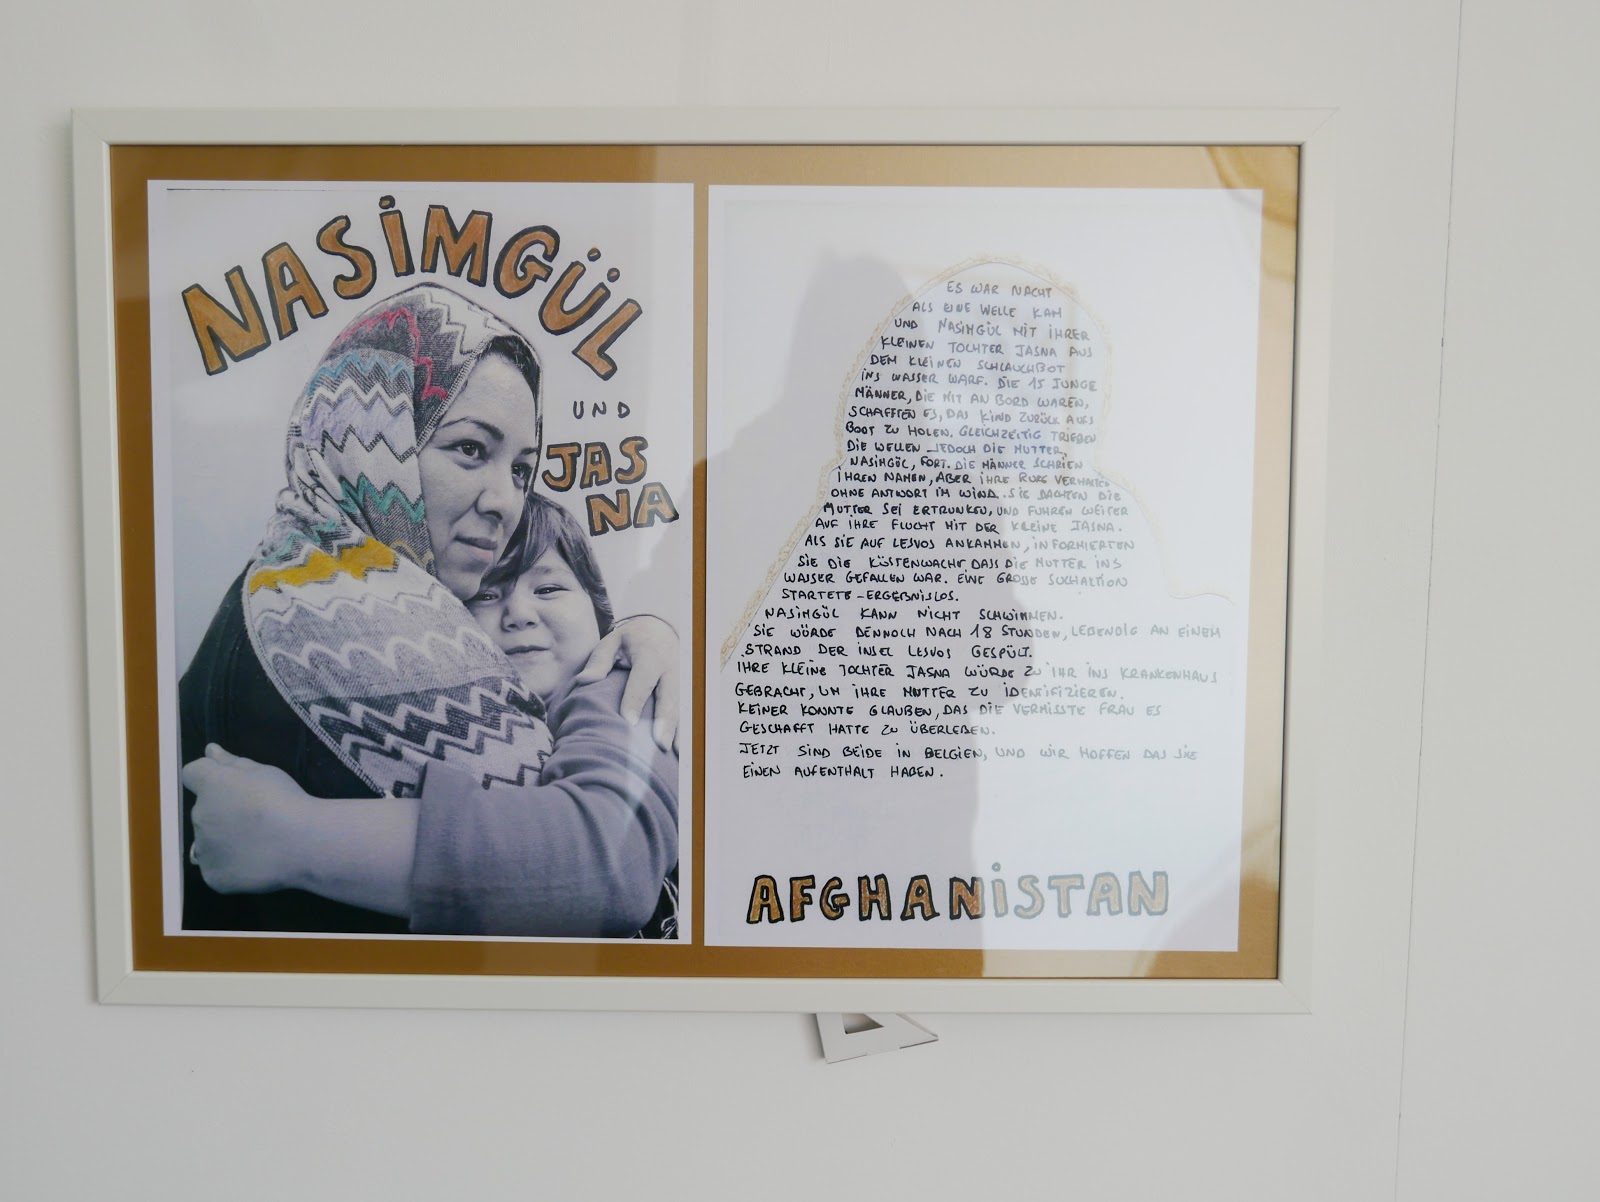 NASIMGÜL
UND
JAS
NA
ES WAR NACHT
ALS EINE WELLE KAM
UND NASIMGÜL MIT IHRER
KLEINEN TOCHTER JASNA AUS
DEM KLEINEN SCHLAUCHBOT
INS WASSER WARF. DIE 15 JUNGE
MÄNNER, DIE MIT AN BORD WAREN,
SCHAFFTEN ES, DAS KIND ZURÜCK AUFS
BOOT ZU HOLEN. GLEICHZEITIG TRIEBEN
DIE WELLEN JEDOCH DIE MUTTER,
NASIMGÜL, FORT. DIE MÄNNER SCHRIEN
IHREN NAMEN, ABER IHRE RUFE VERHALLTEN
OHNE ANTWORT IM WIND. SIE DACHTEN DIE
MUTTER SEI ERTRUNKEN, UND FUHREN WEITER
AUF IHRE FLUCHT MIT DER KLEINE JASNA.
ALS SIE AUF LESVOS ANKAMMEN, INFORMIERTEN
SIE DIE KÜSTENWACHE, DASS DIE MUTTER INS
WASSER GEFALLEN WAR. EINE GROSSE SUCHAKTION
STARTETE - ERGEBNISLOS.
NASIMGÜL KANN NICHT SCHWIMMEN.
SIE WÜRDE DENNOCH NACH 18 STUNDEN, LEBENDIG AN EINEM
STRAND DER INSEL LESVOS GESPÜLT.
IHRE KLEINE TOCHTER JASNA WÜRDE ZU IHR INS KRANKENHAUS
GEBRACHT, UM IHRE MUTTER ZU IDENTIFIZIEREN.
KEINER KONNTE GLAUBEN, DAS DIE VERMISSTE FRAU ES
GESCHAFFT HATTE ZU ÜBERLEBEN.
JETZT SIND BEIDE IN BELGIEN, UND WIR HOFFEN DAS SIE
EINEN AUFENTHALT HABEN.
AFGHANISTAN